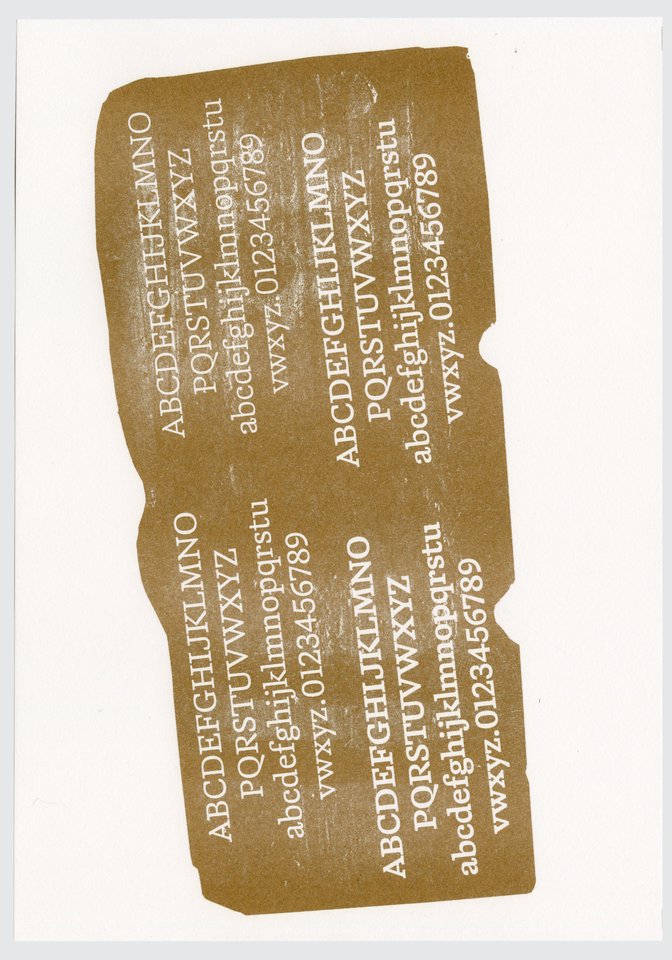 ABCDEFGHIJKLMNO
PQRSTUVWXYZ
abcdefghijklmnopqrstu
vwxyz.0123456789
ABCDEFGHIJKLMNO
PQRSTUVWXYZ
abcdefghijklmnopqrstu
vwxyz.0123456789
ABCDEFGHIJKLMNO
PQRSTUVWXYZ
abcdefghijklmnopqrstu
vwxyz.0123456789
ABCDEFGHIJKLMNO
PQRSTUVWXYZ
abcdefghijklmnopqrstu
vwxyz.0123456789